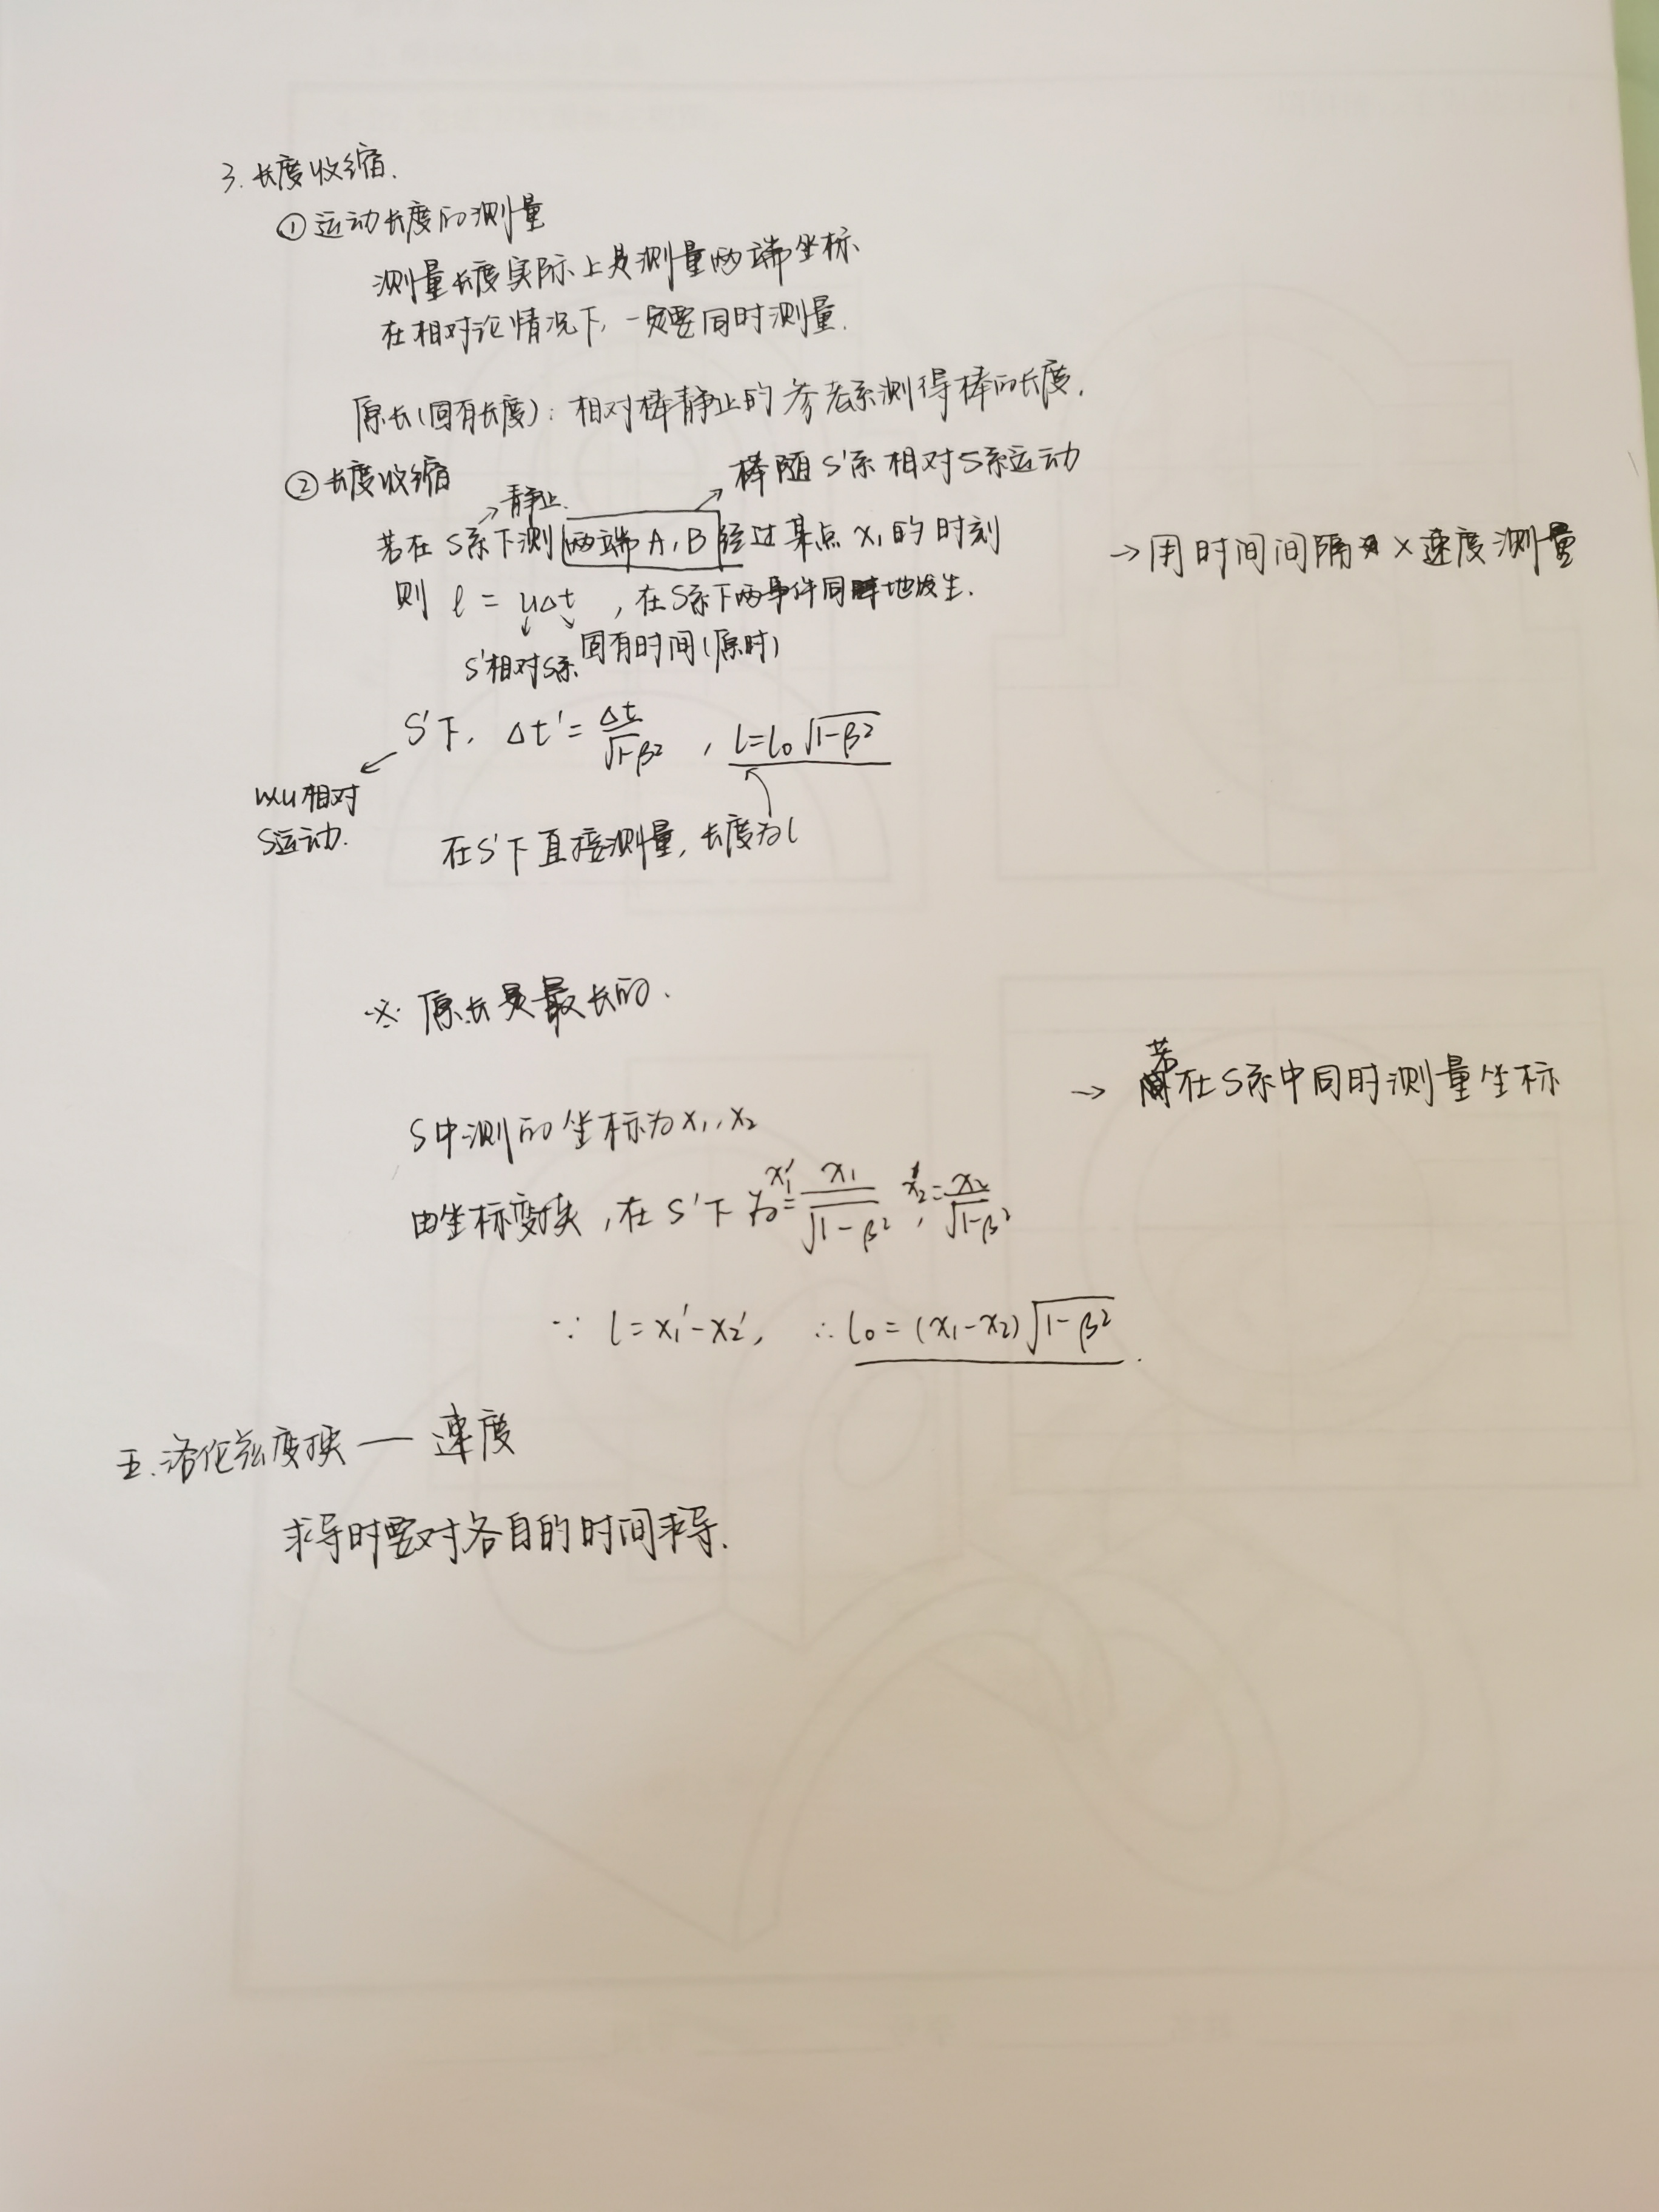 3. 长度收缩.
① 运动长度的测量
测量长度实际上是测量两端坐标
在相对论情况下, 一定要同时测量.
原长(固有长度): 相对棒静止的参考系测得棒的长度.
② 长度收缩
→静止.
→棒随S'系相对S系运动
若在S系下测两端A,B经过某点x₁的时刻
→用时间间隔×速度测量
则 l = uΔt , 在S系下两事件同地发生.
S'相对S系
固有时间(原时)
S'下, Δt' = Δt/√(1-β²) , l=l₀√(1-β²)
以u相对
S运动.
在S'下直接测量, 长度为l
※ 原长是最长的.
→ 若在S系中同时测量坐标
S中测的坐标为x₁, x₂
由坐标变换, 在S'下为 x₁' = x₁/√(1-β²) , x₂' = x₂/√(1-β²)
∵ l = x₁'-x₂', ∴ l₀ = (x₁-x₂)√(1-β²) .
五. 洛伦兹变换 — 速度
求导时要对各自的时间求导.